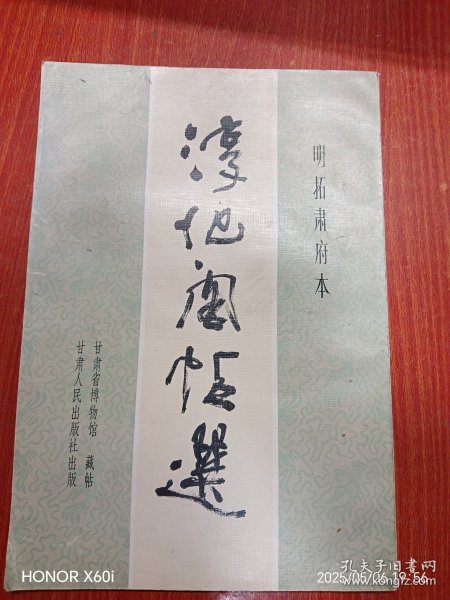 明拓肃府本
淳化阁帖選
甘肃省博物馆 藏帖
甘肃人民出版社出版
HONOR X60i
孔夫子旧书网
2025/05/06 19:56